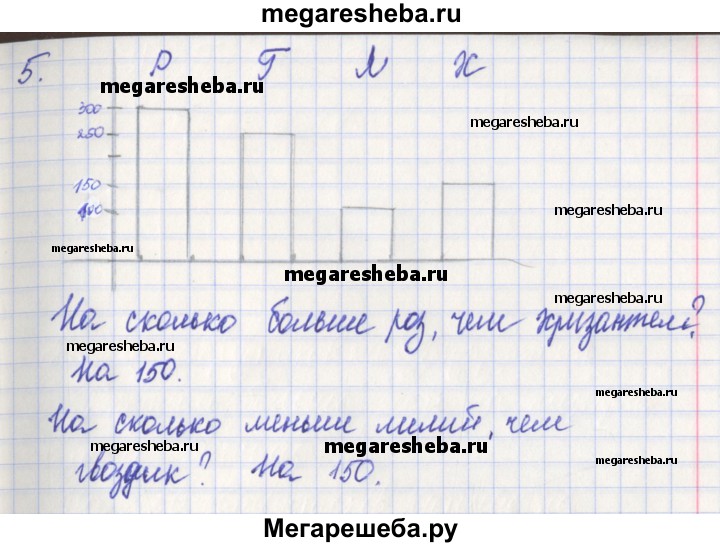 megaresheba.ru
5. Р Г Л Х
megaresheba.ru
300
250
megaresheba.ru
150
100
megaresheba.ru
megaresheba.ru
megaresheba.ru
megaresheba.ru
На сколько больше роз, чем хризантем?
megaresheba.ru
На 150.
megaresheba.ru
На сколько меньше лилий, чем
megaresheba.ru
megaresheba.ru
гвоздик? На 150.
megaresheba.ru
Мегарешеба.ру